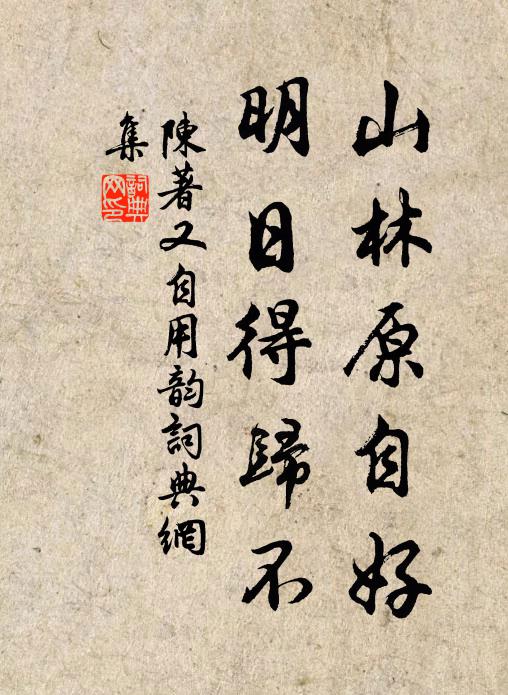 山林原自好
明日得歸不
陳著又自用韵詞典網
集
詞典網印